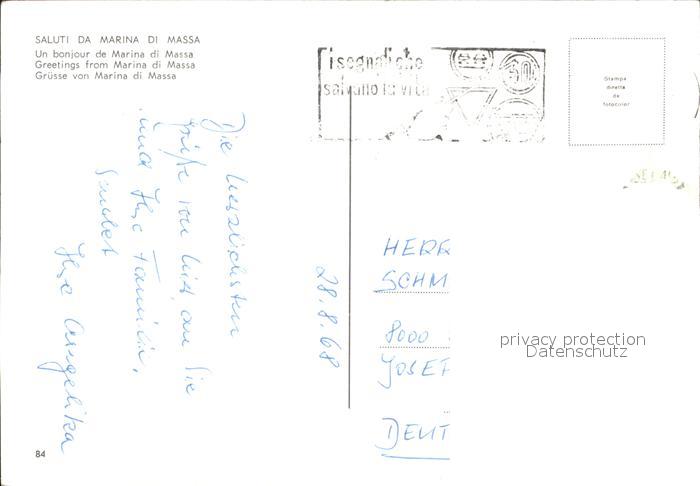 SALUTI DA MARINA DI MASSA
Un bonjour de Marina di Massa
Greetings from Marina di Massa
Grüsse von Marina di Massa
i segnali che
salvano la vita
Stampa
diretta
da
fotocolor
Die herzlichsten
Grüße von hier, an Sie
und Ihre Familie,
sendet
Ihre Angelika
28.8.68
HERR
SCHM
8000
JOSEF
DEUT
privacy protection
Datenschutz
84